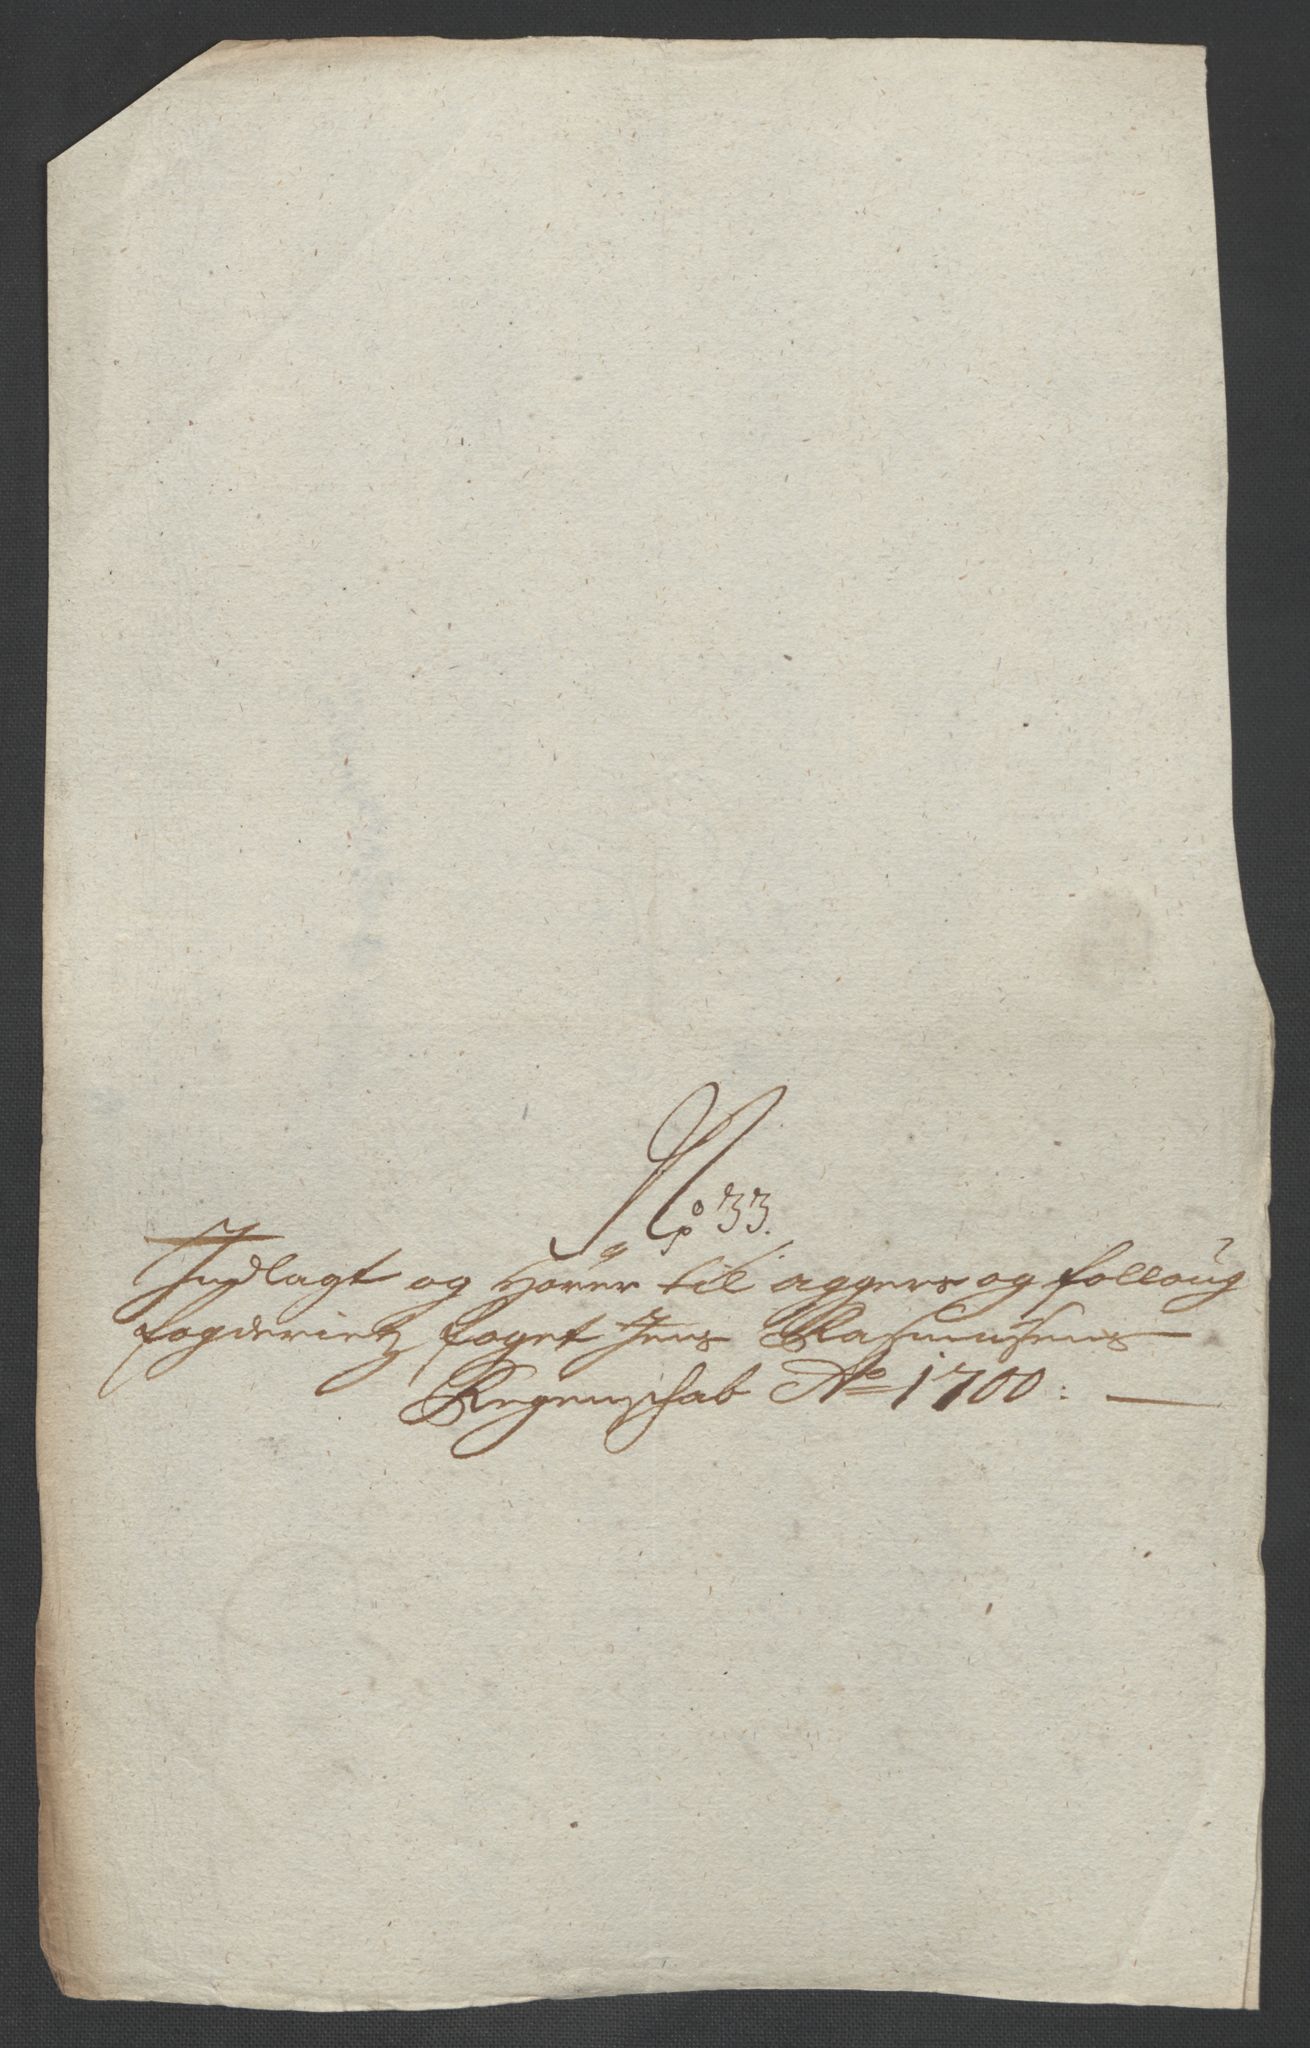 No 33.
Indlagt og Hører til aggers og folloug
fogderietz foget Jens Rasmusens
Regenschab Ao 1700: